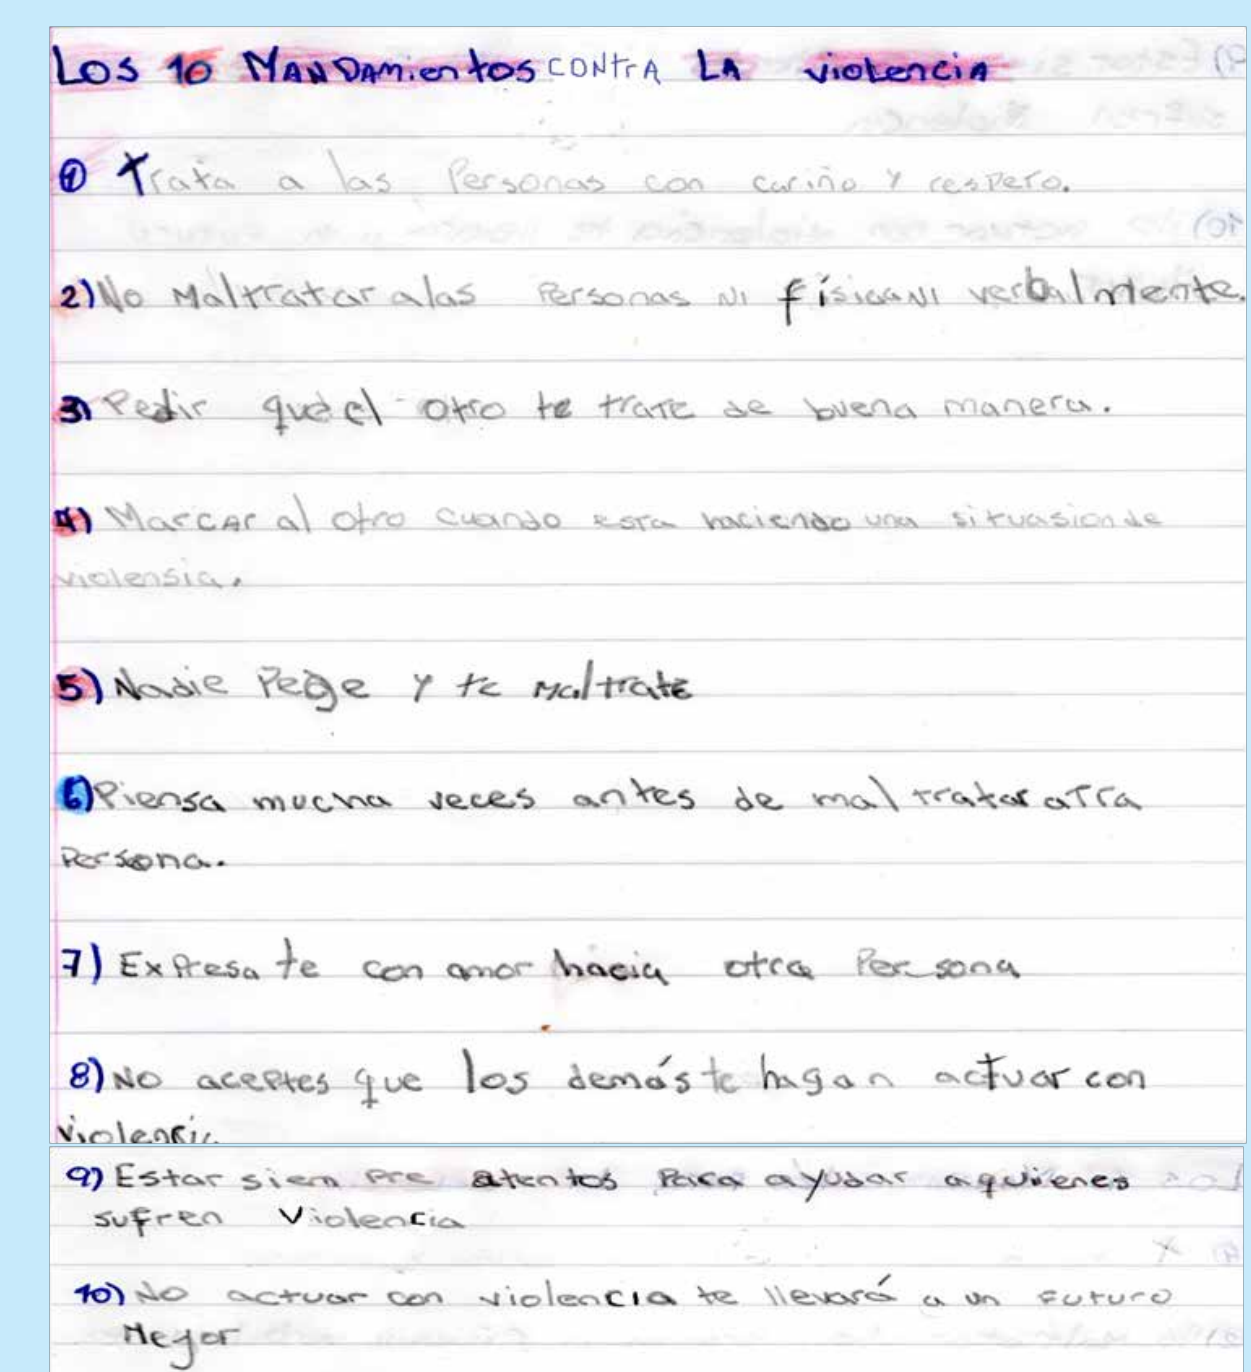 Los 10 MANDAmientos CONtrA LA violenciA
1 Trata a las Personas con cariño y respeto.
2) No Maltratar alas Personas Ni física Ni verbalmente.
3) Pedir que el otro te trate de buena manera.
4) Marcar al otro cuando esta haciendo una situasion de
violensia.
5) Nadie Pege y te maltrate
6) Piensa mucha veces antes de maltratar atra
Persona.
7) Expresate con amor hacia otra Persona
8) No aceptes que los demás te hagan actuar con
violencia
9) Estar siempre atentos Para ayudar aquienes
sufren Violencia
10) No actuar con violencia te llevará a un futuro
Mejor